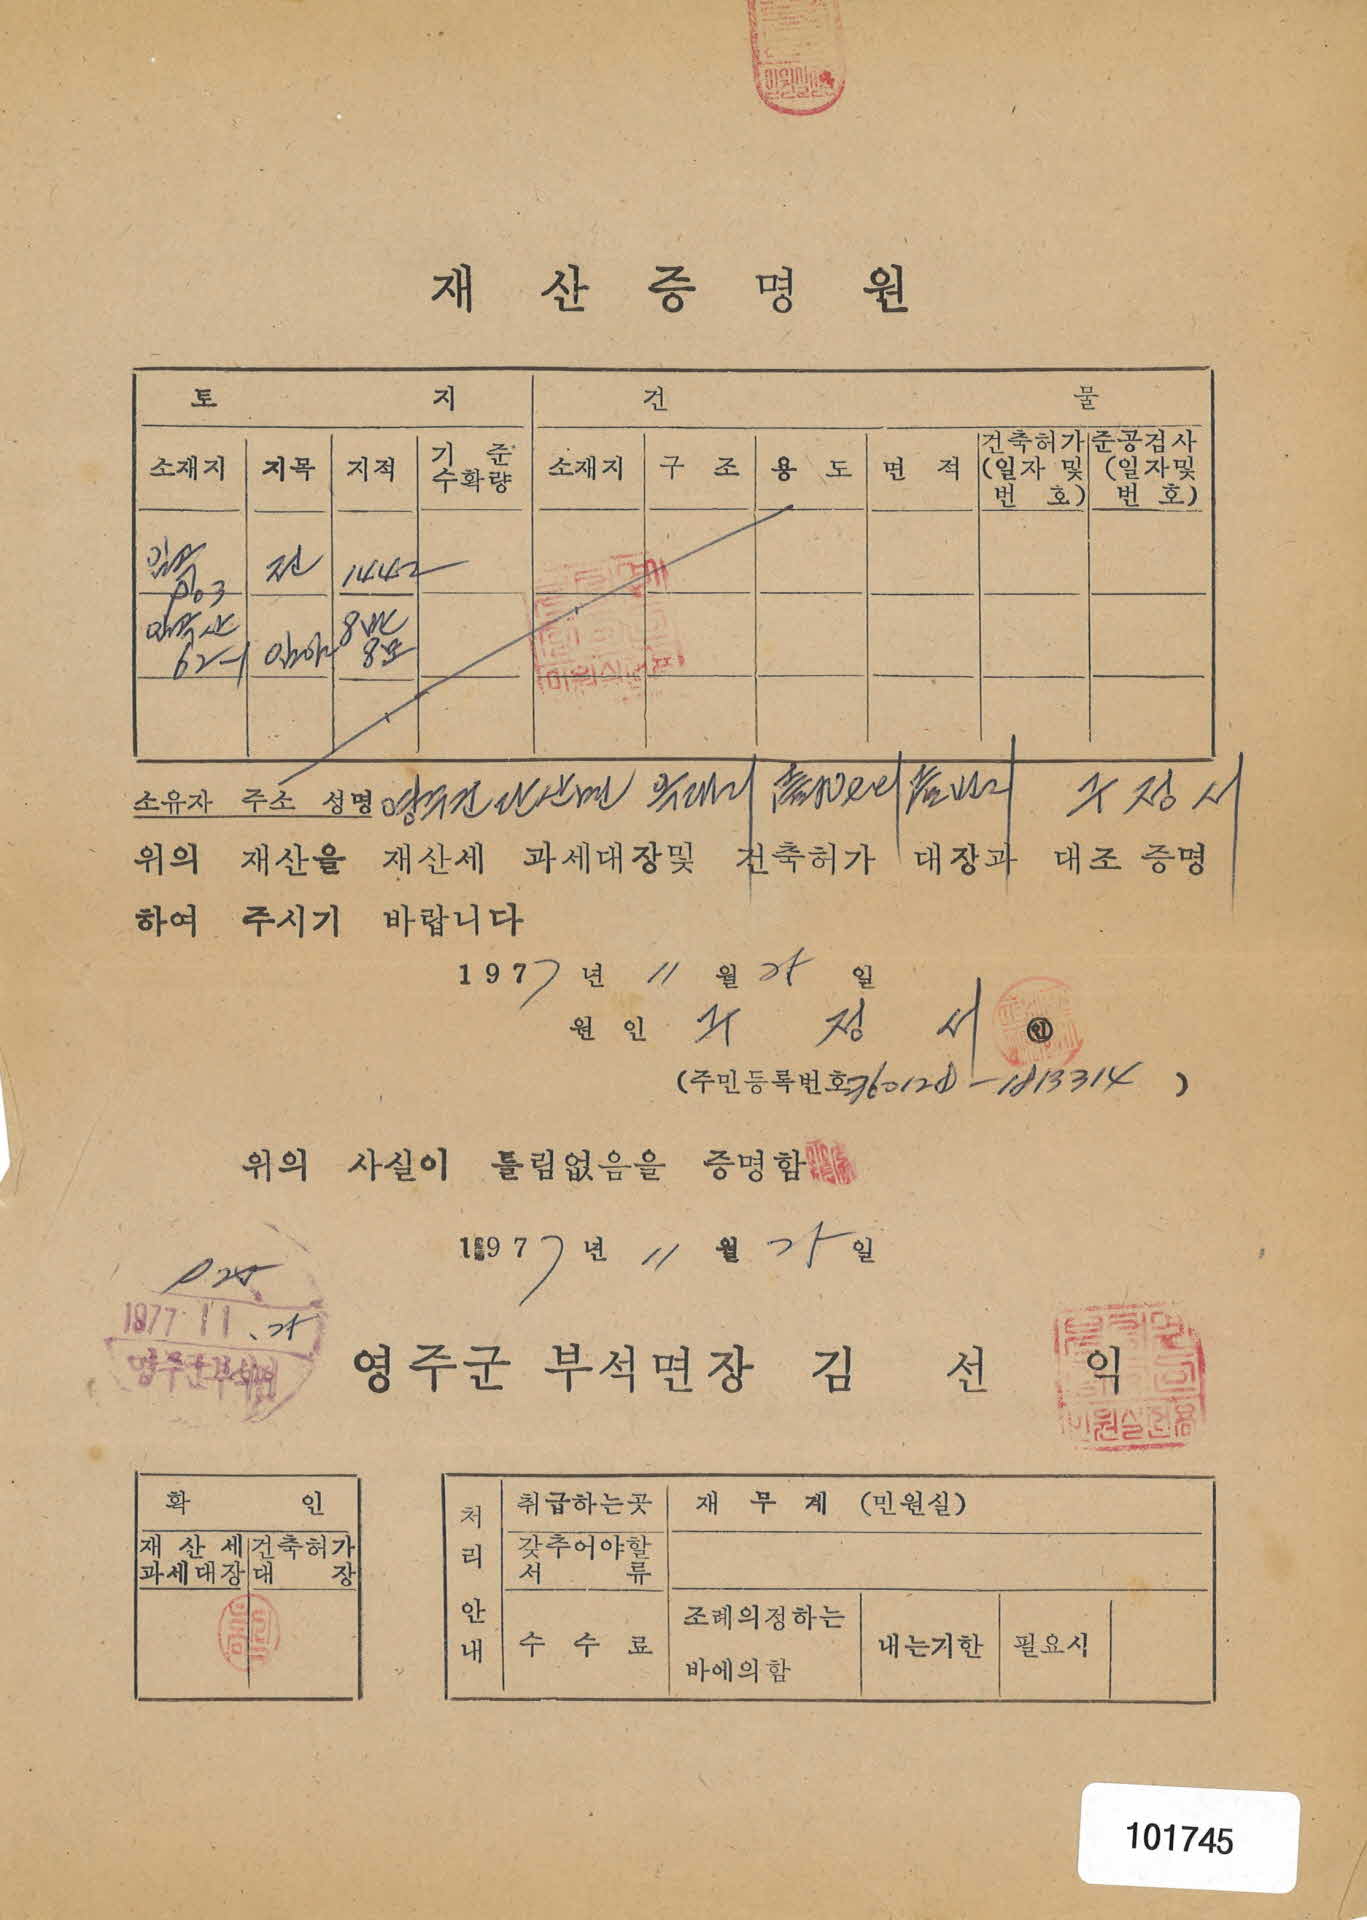 재 산 증 명 원
토 지 건 물
소재지 지목 지적 기 준 수확량 소재지 구 조 용 도 면 적 건축허가 (일자 및 번 호) 준공검사 (일자및 번 호)
전 1442
62-1 임야
소유자 주소 성명 영주군 단산면 정 서
위의 재산을 재산세 과세대장및 건축허가 대장과 대조 증명
하여 주시기 바랍니다
1977년 11월 일
원 인 정 서 ㊞
(주민등록번호 -1813314 )
위의 사실이 틀림없음을 증명함
1977년 11월 일
1977.11.
영주군 부석면장 김 선 익
민원실전용
확 인
재 산 세 과세대장 건축허가 대 장
처리안내
취급하는곳 재 무 계 (민원실)
갖추어야할 서 류
수 수 료 조례의정하는 바에의함 내는기한 필요시
101745